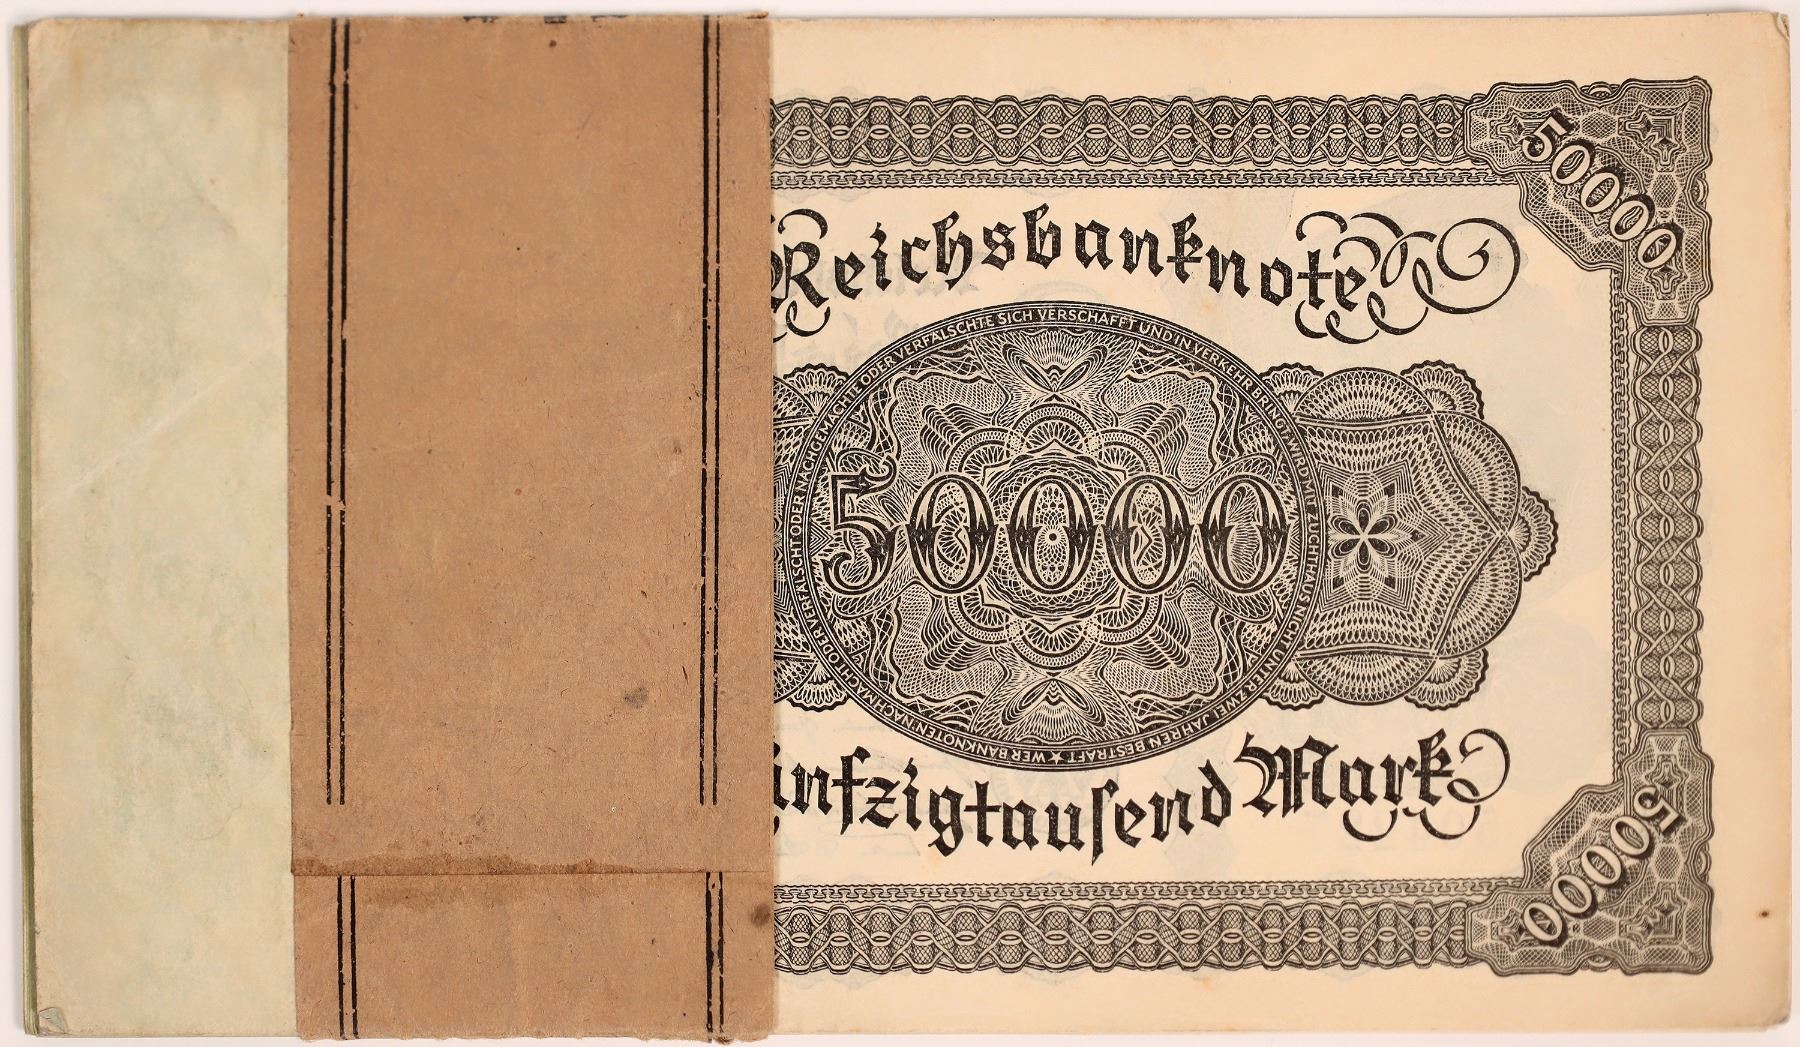 50000
Reichsbanknote
WER BANKNOTEN NACHMACHT ODER VERFÄLSCHT ODER NACHGEMACHTE ODER VERFÄLSCHTE SICH VERSCHAFFT UND IN VERKEHR BRINGT, WIRD MIT ZUCHTHAUS NICHT UNTER ZWEI JAHREN BESTRAFT ★
50000
ünfzigtausend Mark
50000